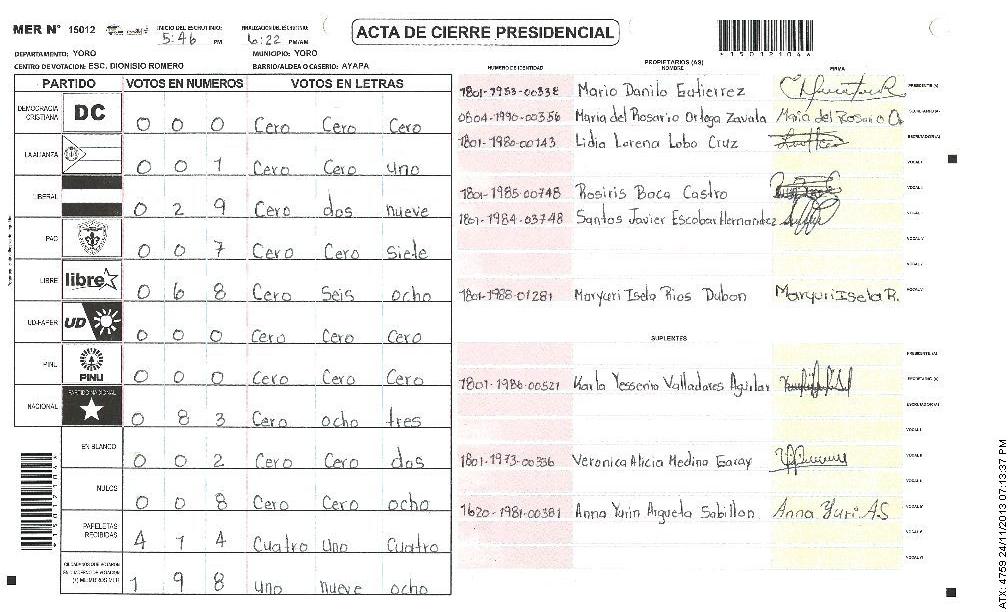 MER N° 15012 INICIO DEL ESCRUTINIO: 5:46 PM FINALIZACION DEL ESCRUTINIO: 6:22 PM/AM
ACTA DE CIERRE PRESIDENCIAL
15012104
DEPARTAMENTO: YORO MUNICIPIO: YORO
CENTRO DE VOTACION: ESC. DIONISIO ROMERO BARRIO/ALDEA O CASERIO: AYAPA
PARTIDO VOTOS EN NUMEROS VOTOS EN LETRAS
DEMOCRACIA CRISTIANA DC 0 0 0 Cero Cero Cero
LA ALIANZA 0 0 1 Cero Cero uno
LIBERAL 0 2 9 Cero dos nueve
PAC 0 0 7 Cero Cero siete
LIBRE libre 0 6 8 Cero Seis ocho
UD-FAPER UD 0 0 0 Cero Cero Cero
PINU PINU 0 0 0 Cero Cero Cero
NACIONAL PARTIDO NACIONAL 0 8 3 Cero ocho tres
EN BLANCO 0 0 2 Cero Cero dos
NULOS 0 0 8 Cero Cero ocho
PAPELETAS RECIBIDAS 4 1 4 Cuatro uno Cuatro
CIUDADANOS QUE VOTARON EN CUADERNO DE VOTACION (+) MIEMBROS MER 1 9 8 uno nueve ocho
PROPIETARIOS (AS)
NUMERO DE IDENTIDAD NOMBRE FIRMA
1801-1983-00338 Mario Danilo Gutierrez PRESIDENTE (A)
0804-1990-00356 Maria del Rosario Ortega Zavala Maria del Rosario O. SECRETARIO (A)
1801-1980-00143 Lidia Lorena Lobo Cruz ESCRUTADOR (A)
VOCAL I
1801-1985-00748 Rosiris Baca Castro VOCAL
1801-1984-03748 Santos Javier Escobar Hernandez VOCAL
VOCAL
VOCAL
1801-1988-01281 Maryuri Isela Rios Dubon Maryuri Isela R. VOCAL
SUPLENTES
PRESIDENTE (A)
1801-1986-00521 Karla Yessenia Valladares Aguilar SECRETARIO (A)
ESCRUTADOR (A)
VOCAL
1801-1973-00336 Veronica Alicia Medina Garay VOCAL
VOCAL
1620-1981-00381 Anna Yurin Argueta Sabillon Anna Yuri A.S VOCAL
VOCAL
VOCAL
ATX: 4759 24/11/2013 07:13:37 PM